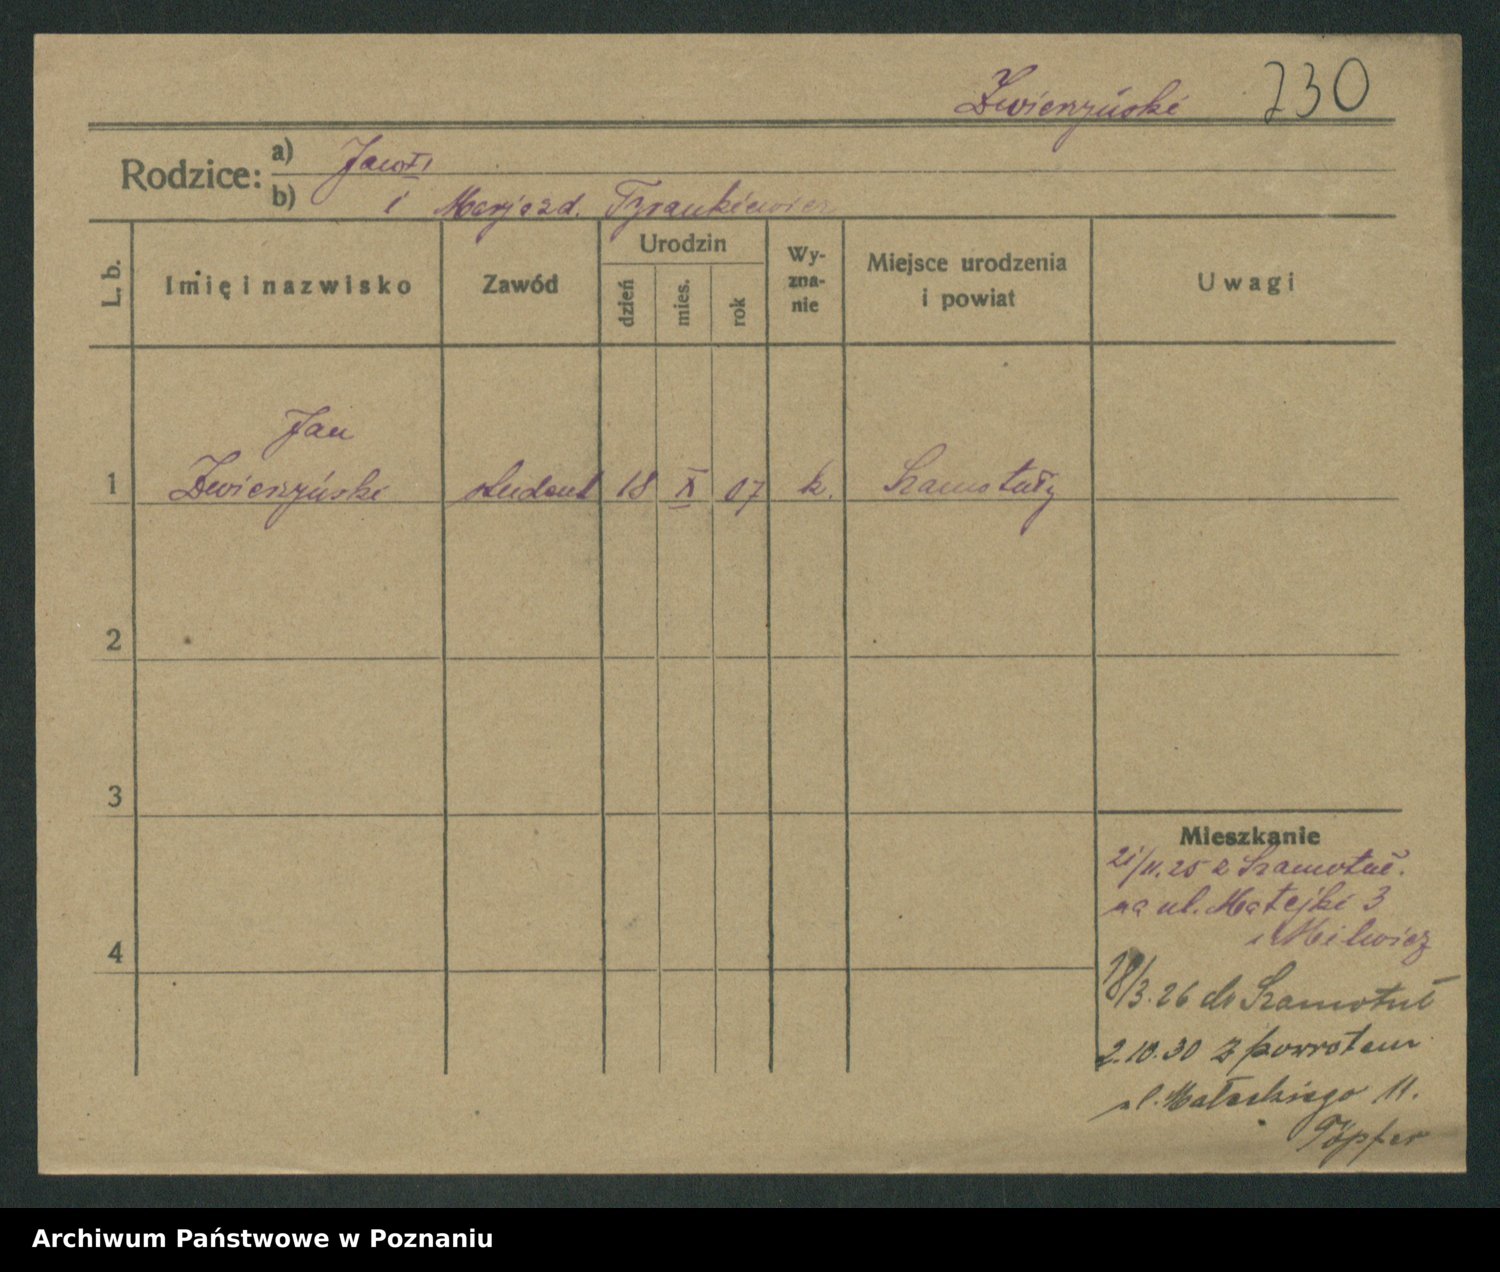 Zwierzyński 730
Rodzice: a)
b) i Marja zd. Tyrankiewicz
L. b. Imię i nazwisko Zawód Urodzin dzień mies. rok Wy-zna-nie Miejsce urodzenia i powiat Uwagi
Jan
1 Zwierzyński student 18 X 07 k. Szamotuły
2
3
Mieszkanie
21/11.25 z Szamotuł.
na ul. Matejki 3
4
18/3.26 do Szamotuł
2.10.30 z powrotem
ul. Małeckiego 11.
Töpfer
Archiwum Państwowe w Poznaniu